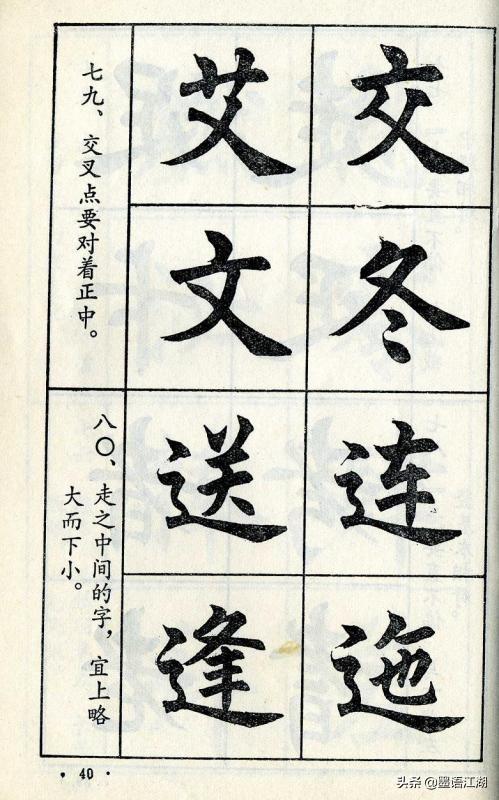 交艾
冬文
七九、交叉点要对着正中。
连送
迤逢
八〇、走之中间的字，宜上略
大而下小。
·40·
头条@墨语江湖